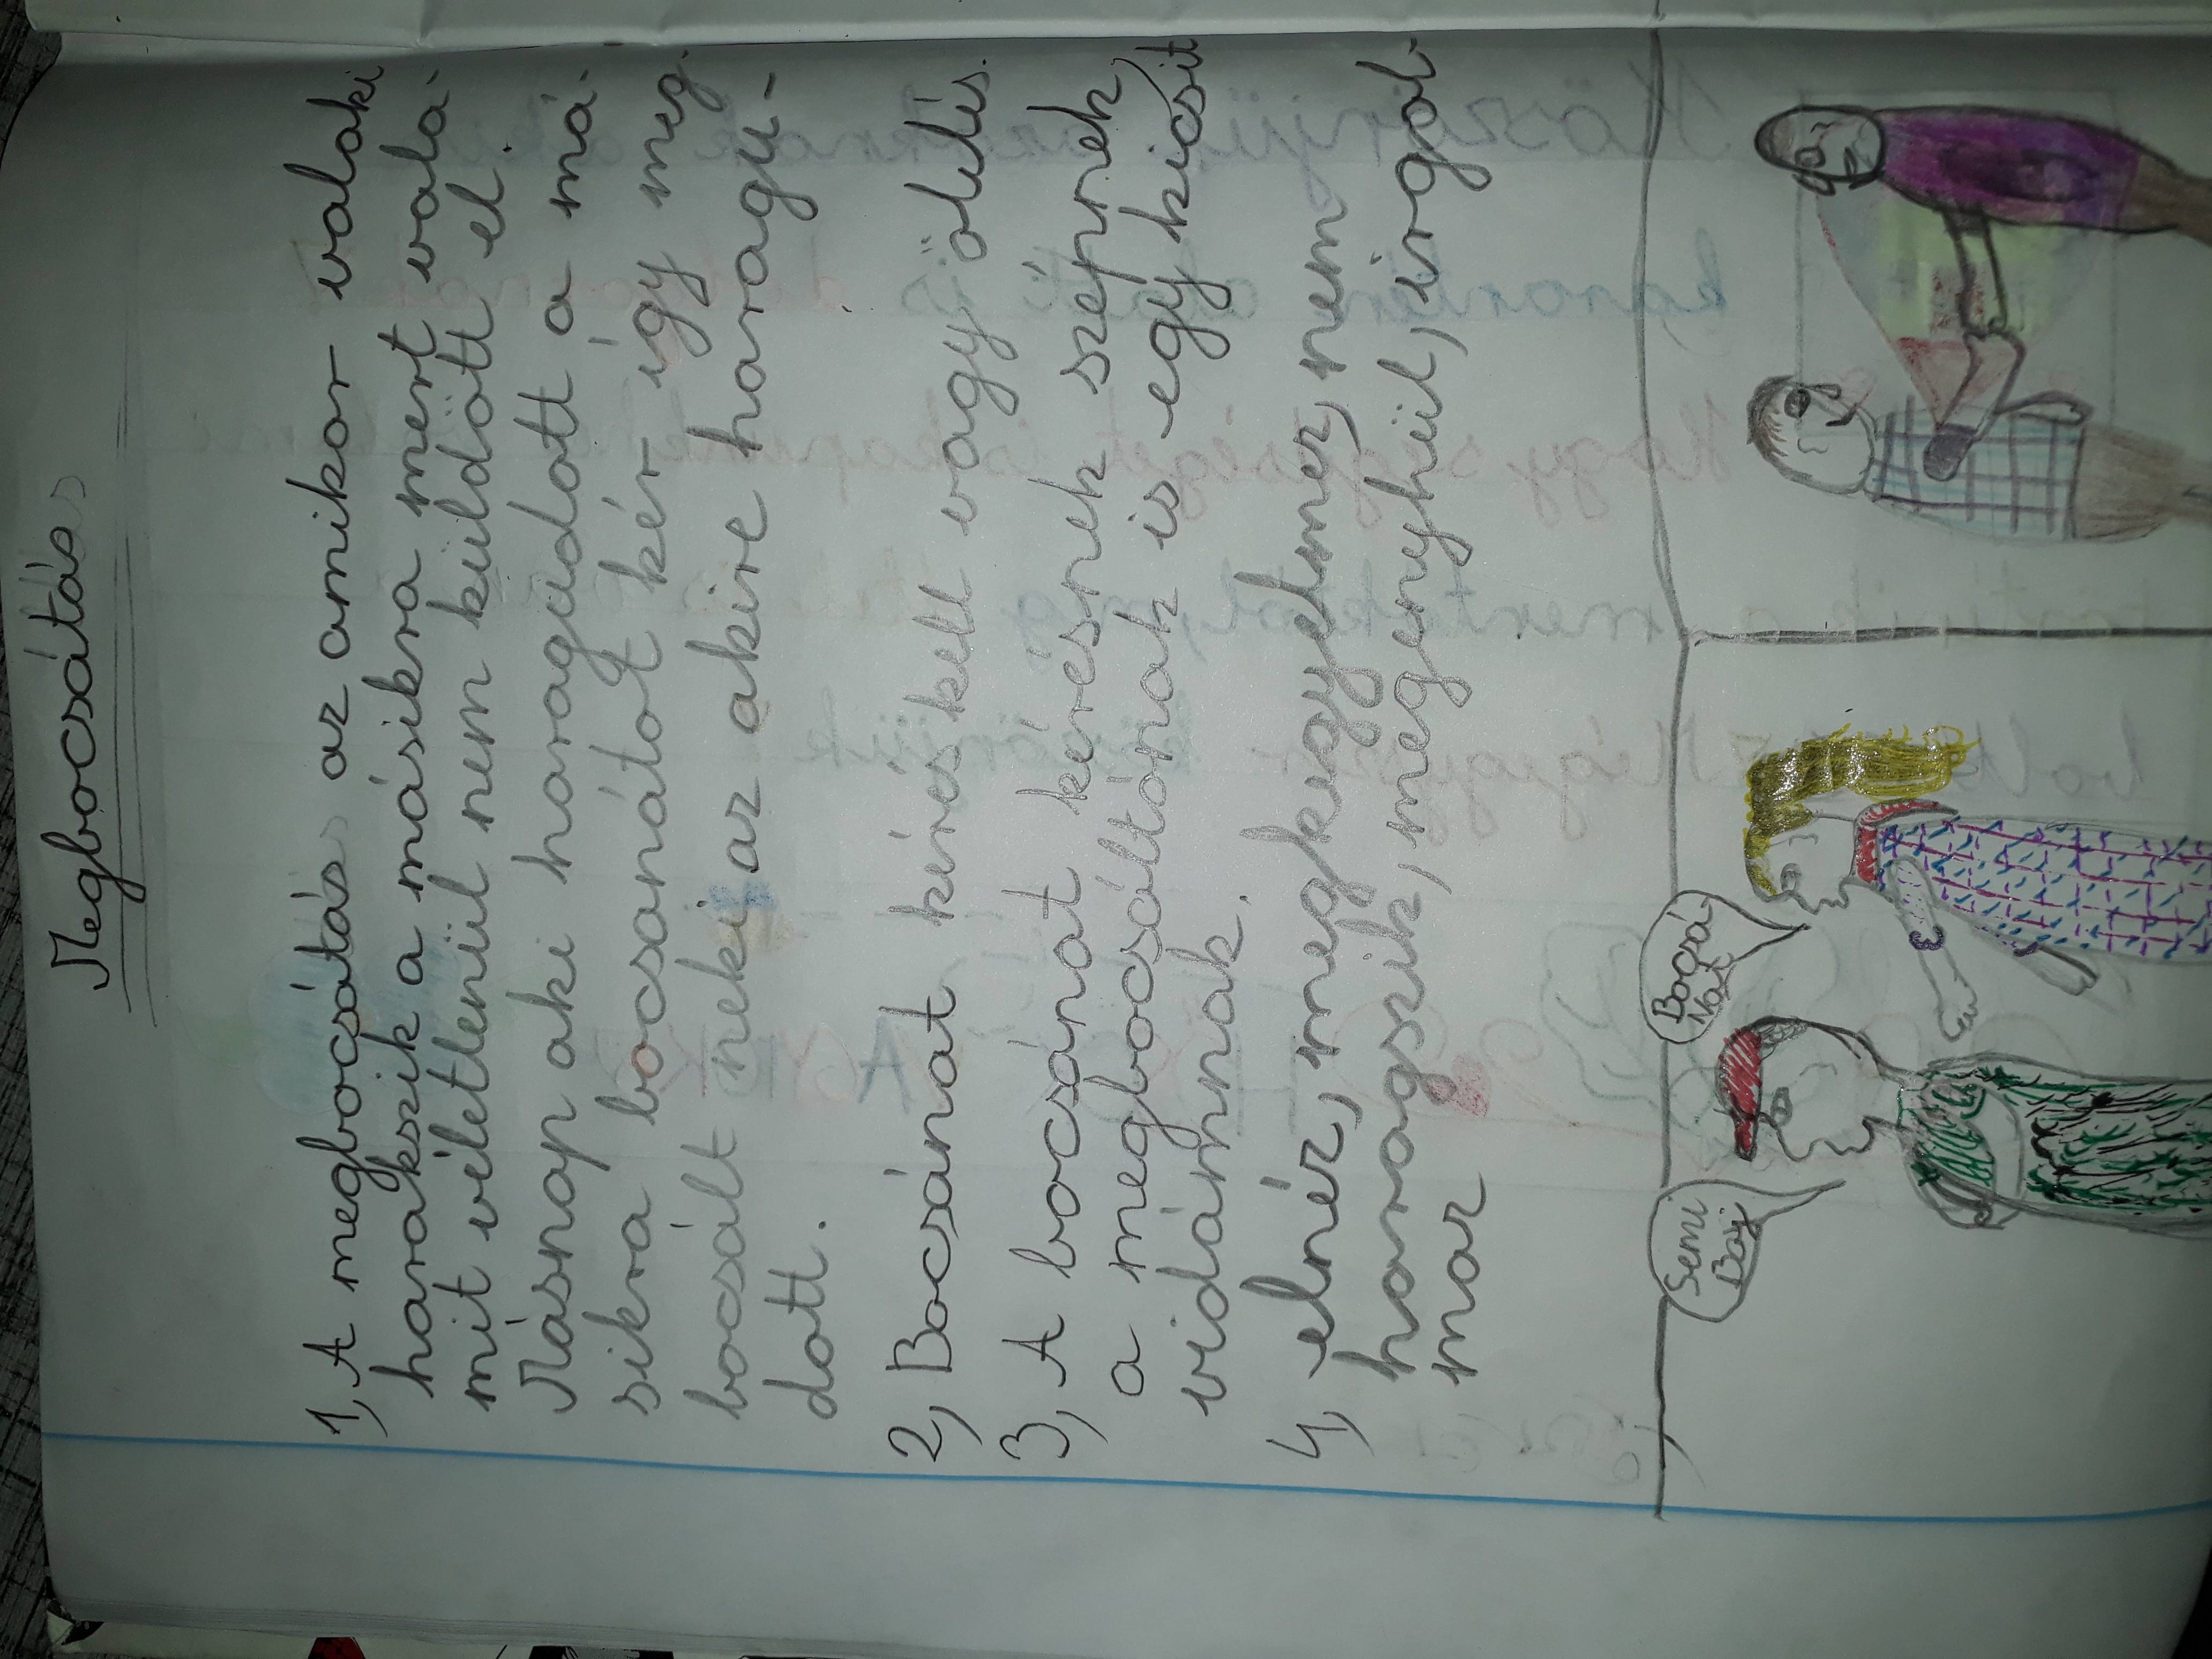 Megbocsátás
1, A megbocsátás az amikor valaki
harakszik a másikra mert vala-
mit véletlenül nem küldött el.
Másnap aki haragudott a má-
sikra bocsánatot kér így meg-
bocsált neki az akire haragu-
dott.
2, Bocsánat kérés kell vagy ölelés.
3, A bocsánat kérésnek szépnek,
a megbocsáltónak is egy kicsit
vidámnak.
4, elnéz, meg kegyelmez, nem
haragszik, megenyhül, irgal-
maz
Semi
Baj
Bocsá
Nat